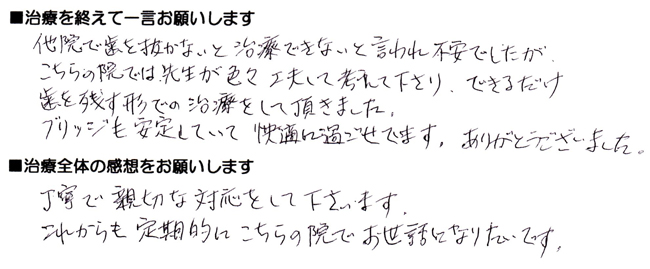 ■治療を終えて一言お願いします
他院で歯を抜かないと治療できないと言われ不安でしたが、
こちらの院では先生が色々工夫して考えて下さり、できるだけ
歯を残す形での治療をして頂きました。
ブリッジも安定していて快適に過ごせてます。ありがとうございました。
■治療全体の感想をお願いします
丁寧で親切な対応をして下さいます。
これからも定期的にこちらの院でお世話になりたいです。